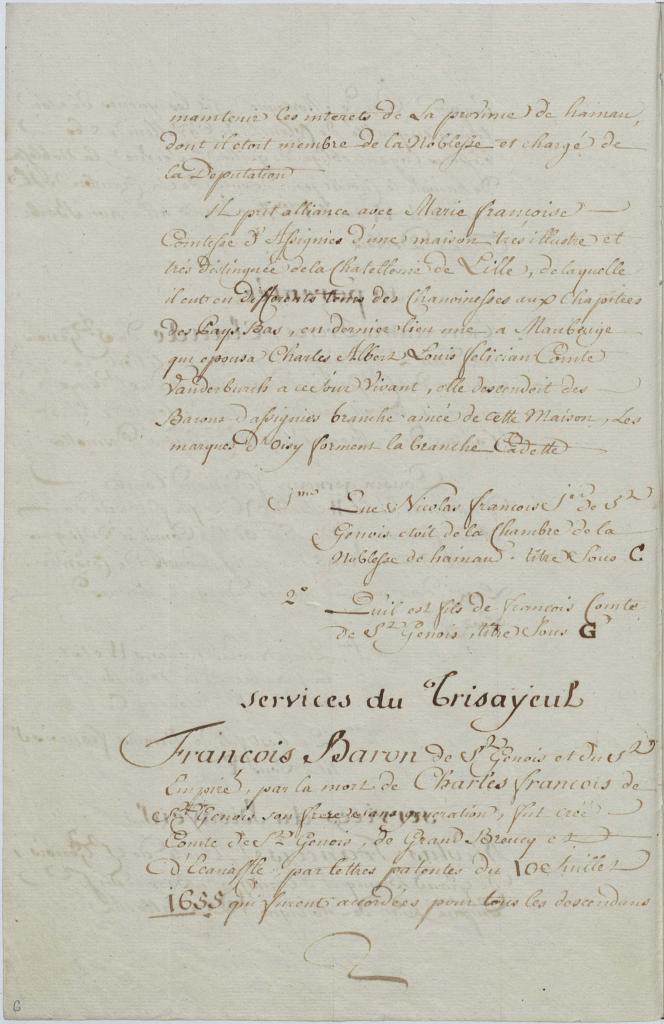 maintenir les interets de La province de hainau,
dont il etoit membre de la Noblesse et chargé de
la Deputation
Il prit alliance avec Marie françoise
Comtesse d'Assignies d'une maison tres illustre et
très distinguée de la Chatellenie de Lille, de laquelle
il eut en differents tems des Chanoinesses aux Chapitres
des Pays Bas, en dernier lieu une a Maubeuge
qui epousa Charles Albert Louis felician Comte
Vanderburch a ce jour Vivant, elle descendoit des
Barons d'assignies branche ainée de cette Maison, Les
marquis d'Oisy forment la branche Cadette
1mo Que Nicolas francois 1er de St
Genois etoit de la Chambre de la
Noblesse de hainau. titre Sous C
2o Qu'il est fils de francois Comte
de St Genois, titre Sous G
services du Trisayeul
François Baron de St Genois et du St
Empire, par la mort de Charles françois de
St Genois son frere sans generation, fut créé
Comte de St Genois, de Grand Breucq et
D'Ecanaffle par lettres patentes du 10e Juillet
1655 qui furent accordées pour tous les descendans
6